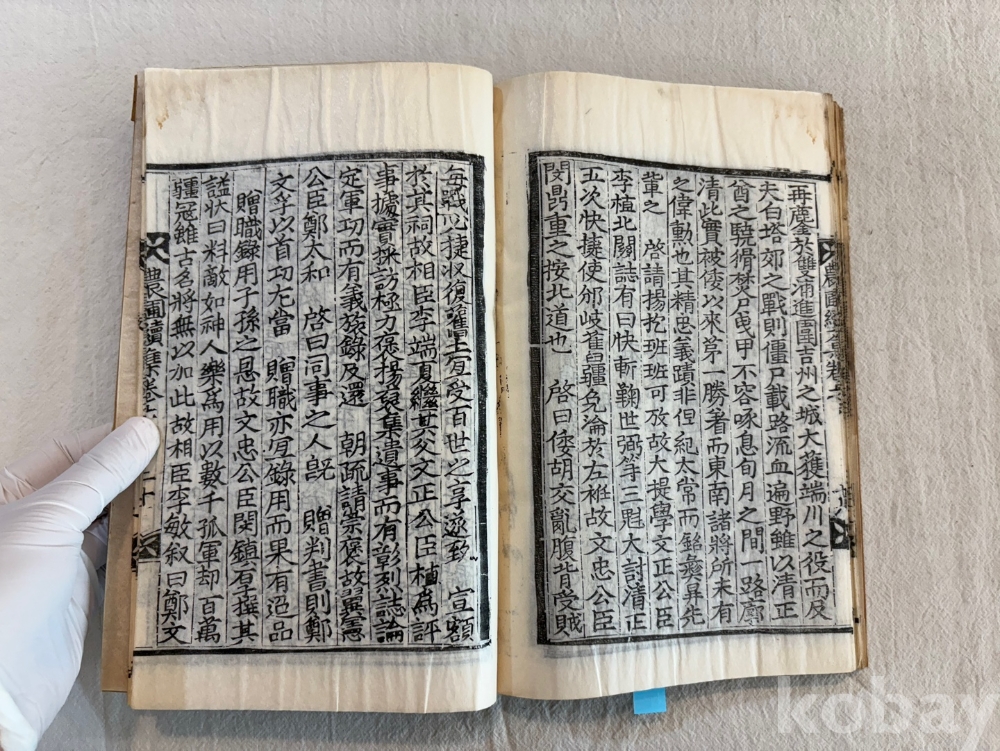 農圃續集卷
再鏖於雙浦進圍吉州之城大獲端川之役而及
夫白塔郊之戰則僵尸載路流血遍野雖以清正
酋之驍猾焚尸曳甲不容啄息旬月之間一路廓
清此實被倭以來第一勝着而東南諸將所未有
之偉勳也其精忠義蹟非但紀太常而銘彝鼎先
輩之 啓請揚扢班班可放故大提學文正公臣
李植北關誌有曰快斬鞠世弼等三魁大討清正
五次快擬使邠岐舊疆免淪於左袵故文忠公臣
閔鼎重之按北道也 啓曰倭胡交亂腹背受賊
每戰必捷收復舊土宜受百世之享遂致 宣額
於其祠故相臣李端夏繼其父文正公臣植為評
事據實採訪極力褒揚裒集遺事而有彰列誌論
定軍功而有義旅錄及還 朝疏請崇褒故翼憲
公臣鄭太和 啓曰同事之人旣 贈判書則鄭
文孚以首功尤當 贈職亦宜錄用而果有品
贈職錄用子孫之恩故文忠公臣閔鎮厚撰其
謚狀曰料敵如神人樂為用以數千孤軍却百萬
疆寇雖古名將無以加此故相臣李敏叙曰鄭文
農圃續集卷
kobay